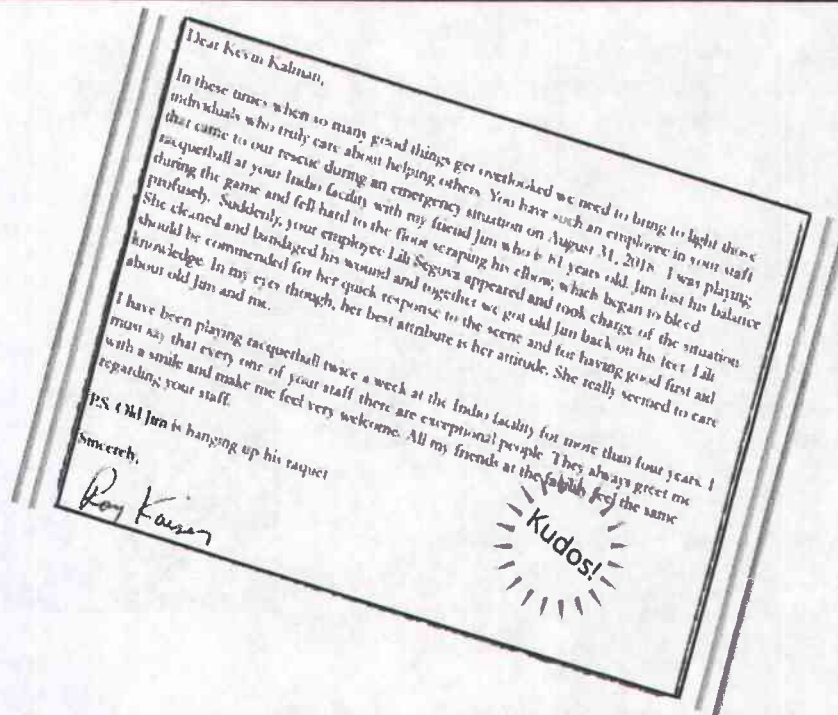 Dear Kevin Kalman,
In these times when so many good things get overlooked we need to bring to light those
individuals who truly care about helping others. You have such an employee in your staff
that came to our rescue during an emergency situation on August 31, 2018. I was playing
racquetball at your Indio facility with my friend Jim who is 81 years old. Jim lost his balance
during the game and fell hard to the floor scraping his elbow, which began to bleed
profusely. Suddenly, your employee Lili Segova appeared and took charge of the situation.
She cleaned and bandaged his wound and together we got old Jim back on his feet. Lili
should be commended for her quick response to the scene and for having good first aid
knowledge. In my eyes though, her best attribute is her attitude. She really seemed to care
about old Jim and me.
I have been playing racquetball twice a week at the Indio facility for more than four years. I
must say that every one of your staff there are exceptional people. They always greet me
with a smile and make me feel very welcome. All my friends at the facility feel the same
regarding your staff.
P.S. Old Jim is hanging up his raquet
Sincerely,
Roy Kaiser
Kudos!